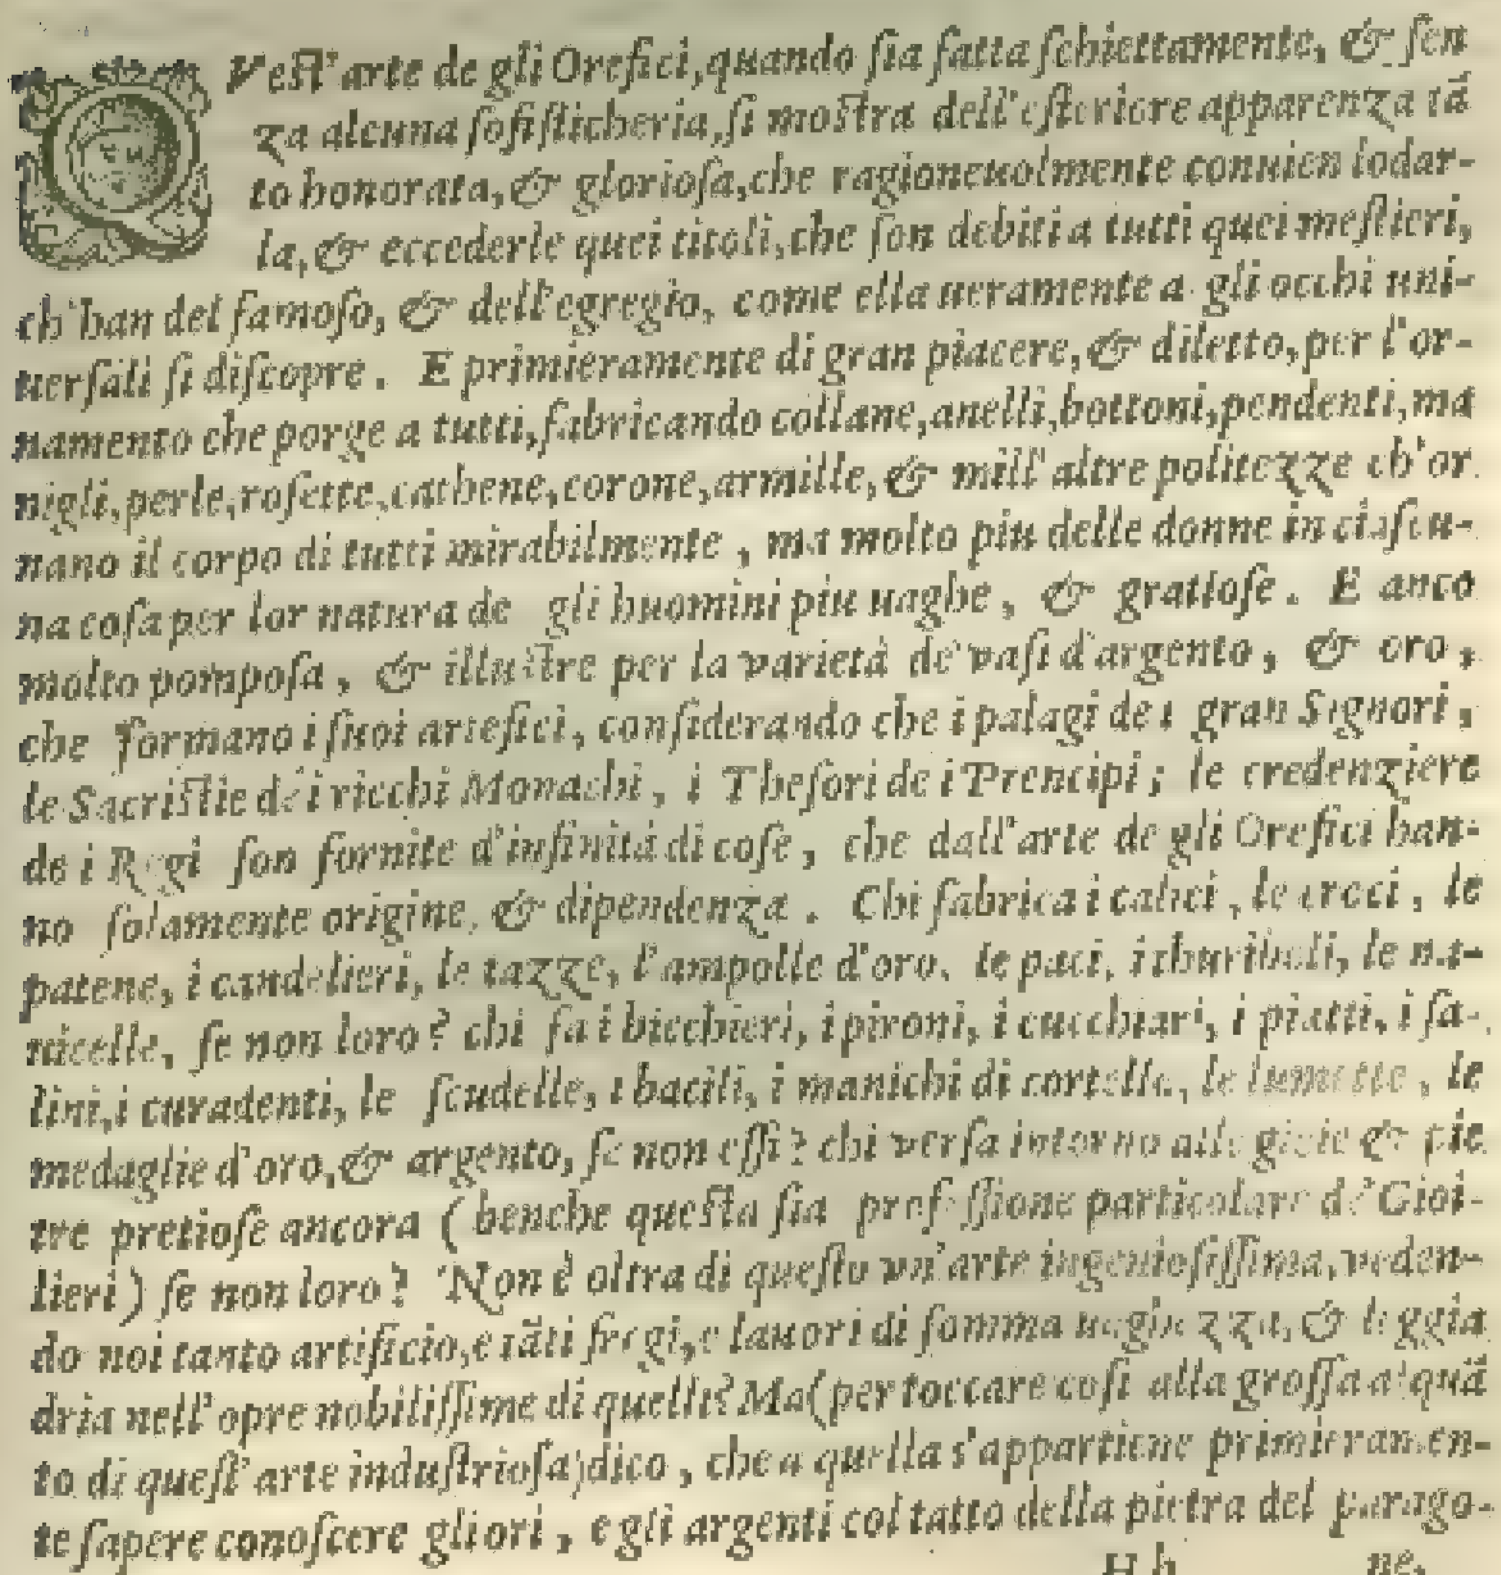 QVest'arte de gli Orefici, quando ſia fatta ſchiettamente, & ſen
za alcuna ſofiſticheria, ſi moſtra dell'eſteriore apparenza tã
to honorata, & glorioſa, che ragioneuolmente conuien lodar-
la, & eccederle quei titoli, che ſon debiti a tutti quei meſtieri,
ch'han del famoſo, & dell'egregio, come ella ueramente a gli occhi uni-
uerſali ſi diſcopre. E primieramente di gran piacere, & diletto, per l'or-
namento che porge a tutti, fabricando collane, anelli, bottoni, pendenti, ma
nigli, perle, roſette, cathene, corone, armille, & mill'altre politezze ch'or
nano il corpo di tutti mirabilmente, ma molto piu delle donne in ciaſcu-
na coſa per lor natura de gli huomini piu uaghe, & gratioſe. E anco
molto pompoſa, & illuſtre per la varietà de' vaſi d'argento, & oro,
che formano i ſuoi artefici, conſiderando che i palagi de i gran Signori,
le Sacriſtie de i ricchi Monachi, i Theſori de i Prencipi; le credenziere
de i Regi ſon fornite d'infinità di coſe, che dall'arte de gli Orefici han-
no ſolamente origine, & dipendenza. Chi fabrica i calici, le croci, le
patene, i candelieri, le tazze, l'ampolle d'oro, le paci, i thuribuli, le na-
uicelle, ſe non loro? chi fa i bicchieri, i pironi, i cucchiari, i piatti, i ſa-
lini, i curadenti, le ſcudelle, i bacili, i manichi di cortelle, le lumette, le
medaglie d'oro, & argento, ſe non eſſi? chi verſa intorno alle gioie & pie
tre pretioſe ancora (benche queſta ſia profeſſione particolare de' Gioi-
lieri) ſe non loro? Non è oltra di queſto vn'arte ingenioſiſſima, veden-
do noi tanto artificio, e tãti fregi, e lauori di ſomma uaghezza, & leggia
dria nell'opre nobiliſſime di quelli? Ma (per toccare coſi alla groſſa alquã
to di queſt'arte induſtrioſa) dico, che a quella s'appartiene primieramen-
te ſapere conoſcere gli ori, e gli argenti col tatto della pietra del parago-
H h ne,